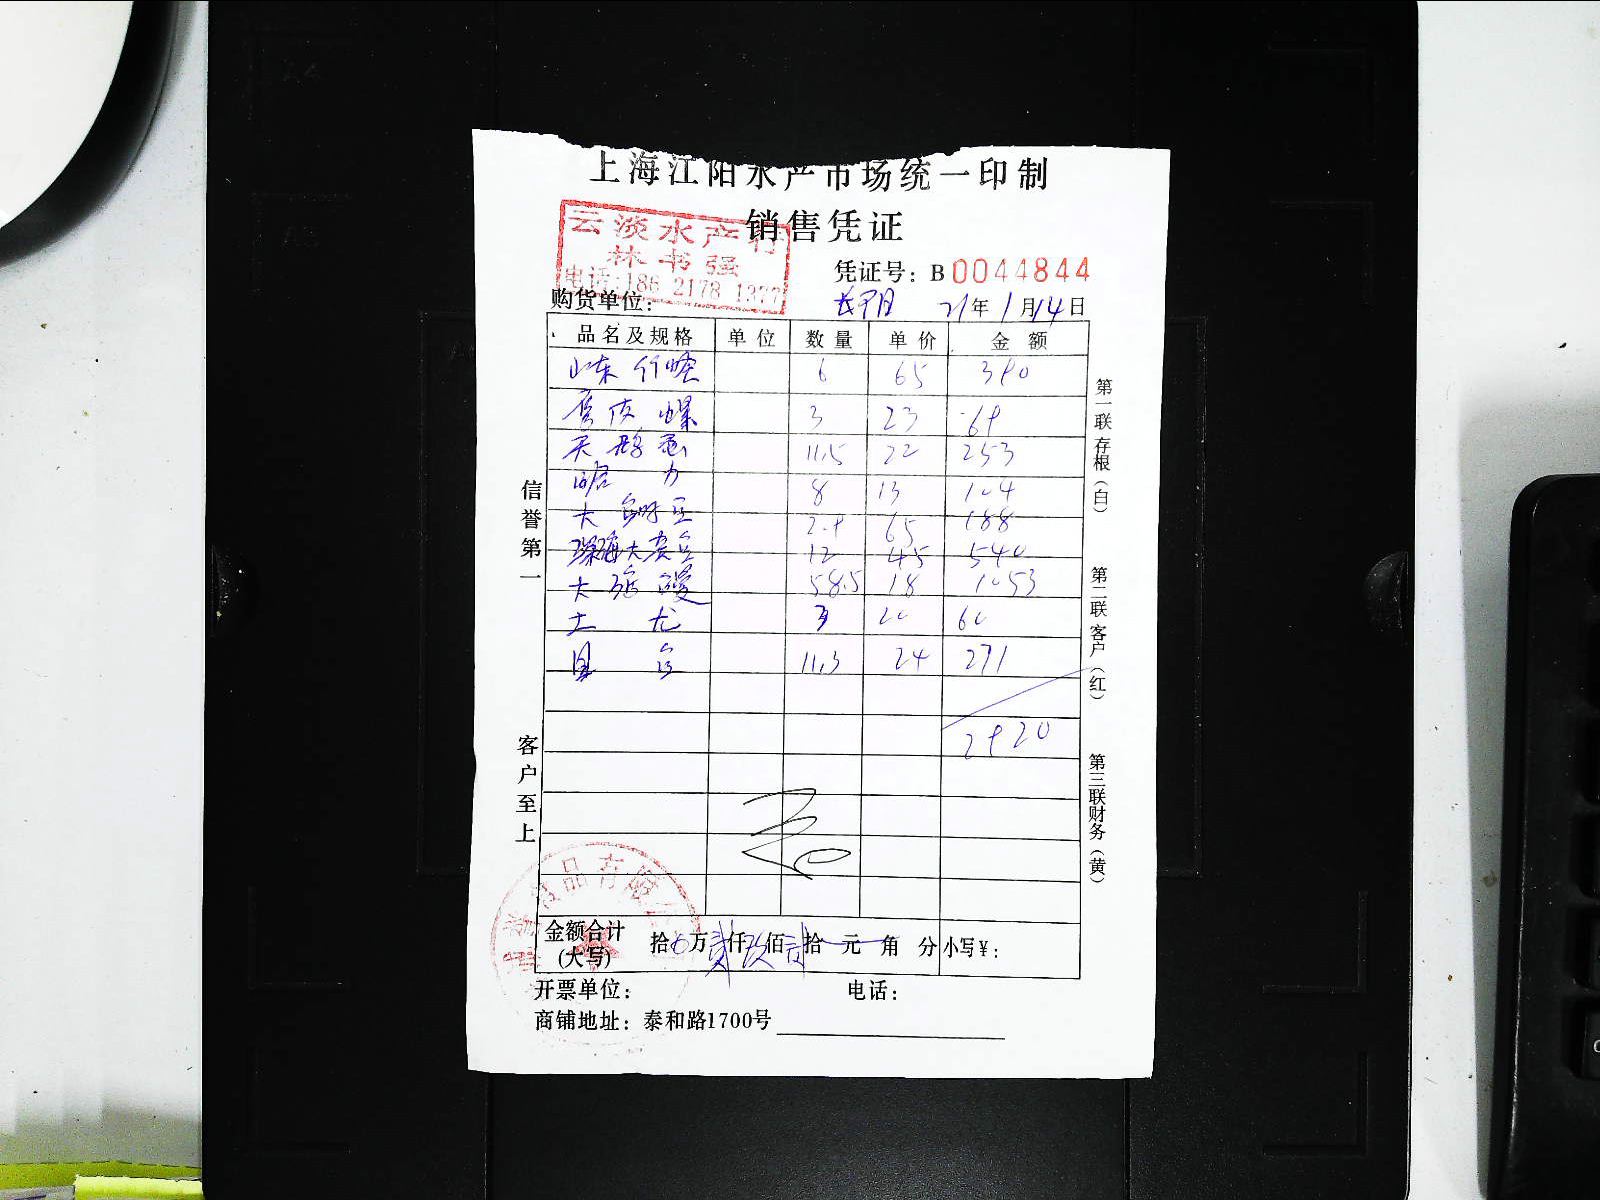 上海江阳水产市场统一印制
销售凭证
云淡水产行
林书强
电话:186 2178 1377
凭证号: B0044844
购货单位: 21年1月14日
品名及规格 单位 数量 单价 金额
山东 竹蛏 6 65 390
螺 3 23 69
天鹅蛋 11.5 22 253
蛤 8 13 104
大 2.9 65 188
深海大 12 45 540
大 58.5 18 1053
土龙 3 20 60
11.3 24 271
2920
信誉第一
客户至上
第一联存根(白)
第二联客户(红)
第三联财务(黄)
食品有限公
金额合计(大写) 拾0万贰仟玖佰贰拾 元 角 分 小写¥:
开票单位: 电话:
商铺地址: 泰和路1700号